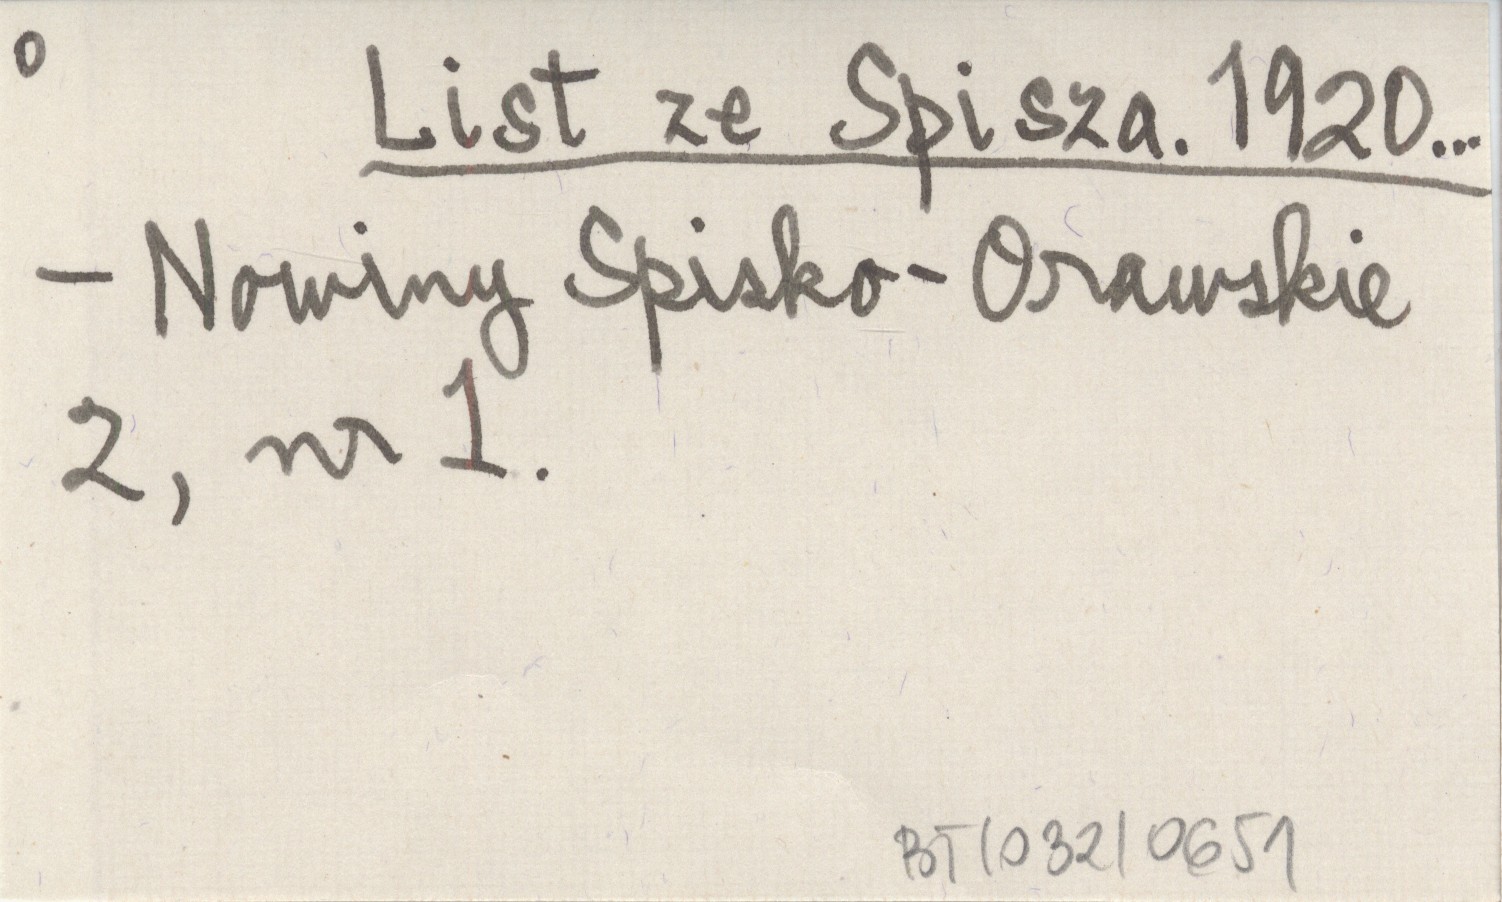 o
List ze Spisza. 1920...
- Nowiny Spisko-Orawskie
2, nr 1.
BT/032/0651